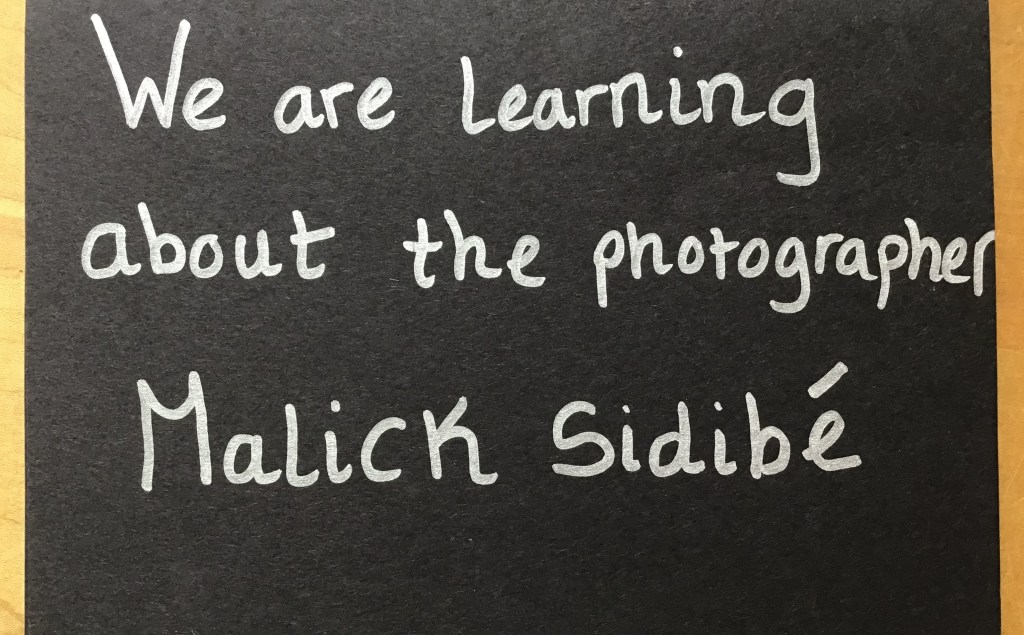 We are learning
about the photographer
Malick Sidibé